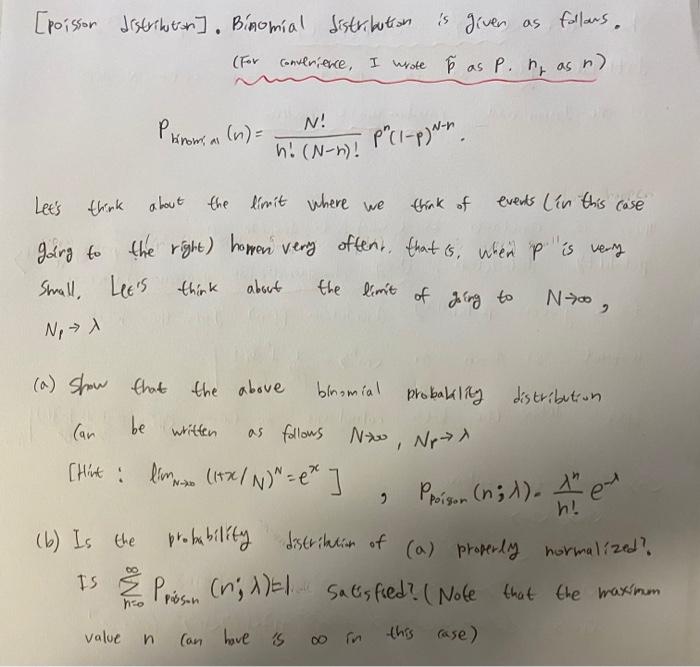 [poisson distribution]. Binomial distribution is given as follows.
(For convenience, I wrote p̃ as P. n_r as n)
P_binomial (n) = N! / n! (N-n)! p^n (1-p)^{N-n}.
Let's think about the limit where we think of events (in this case
going to the right) happen very often, that is, when "p" is very
small. Let's think about the limit of going to N→∞,
Np → λ
(a) Show that the above binomial probability distribution
can be written as follows N→∞, Np→λ
[Hint : lim_{N→∞} (1+x/N)^N = e^x ] , P_poison (n;λ) = λ^n / n! e^{-λ}
(b) Is the probability distribution of (a) properly normalized?
Is ∑_{n=0}^{∞} P_poisson (n;λ)=1 satisfied? (Note that the maximum
value n can have is ∞ in this case)